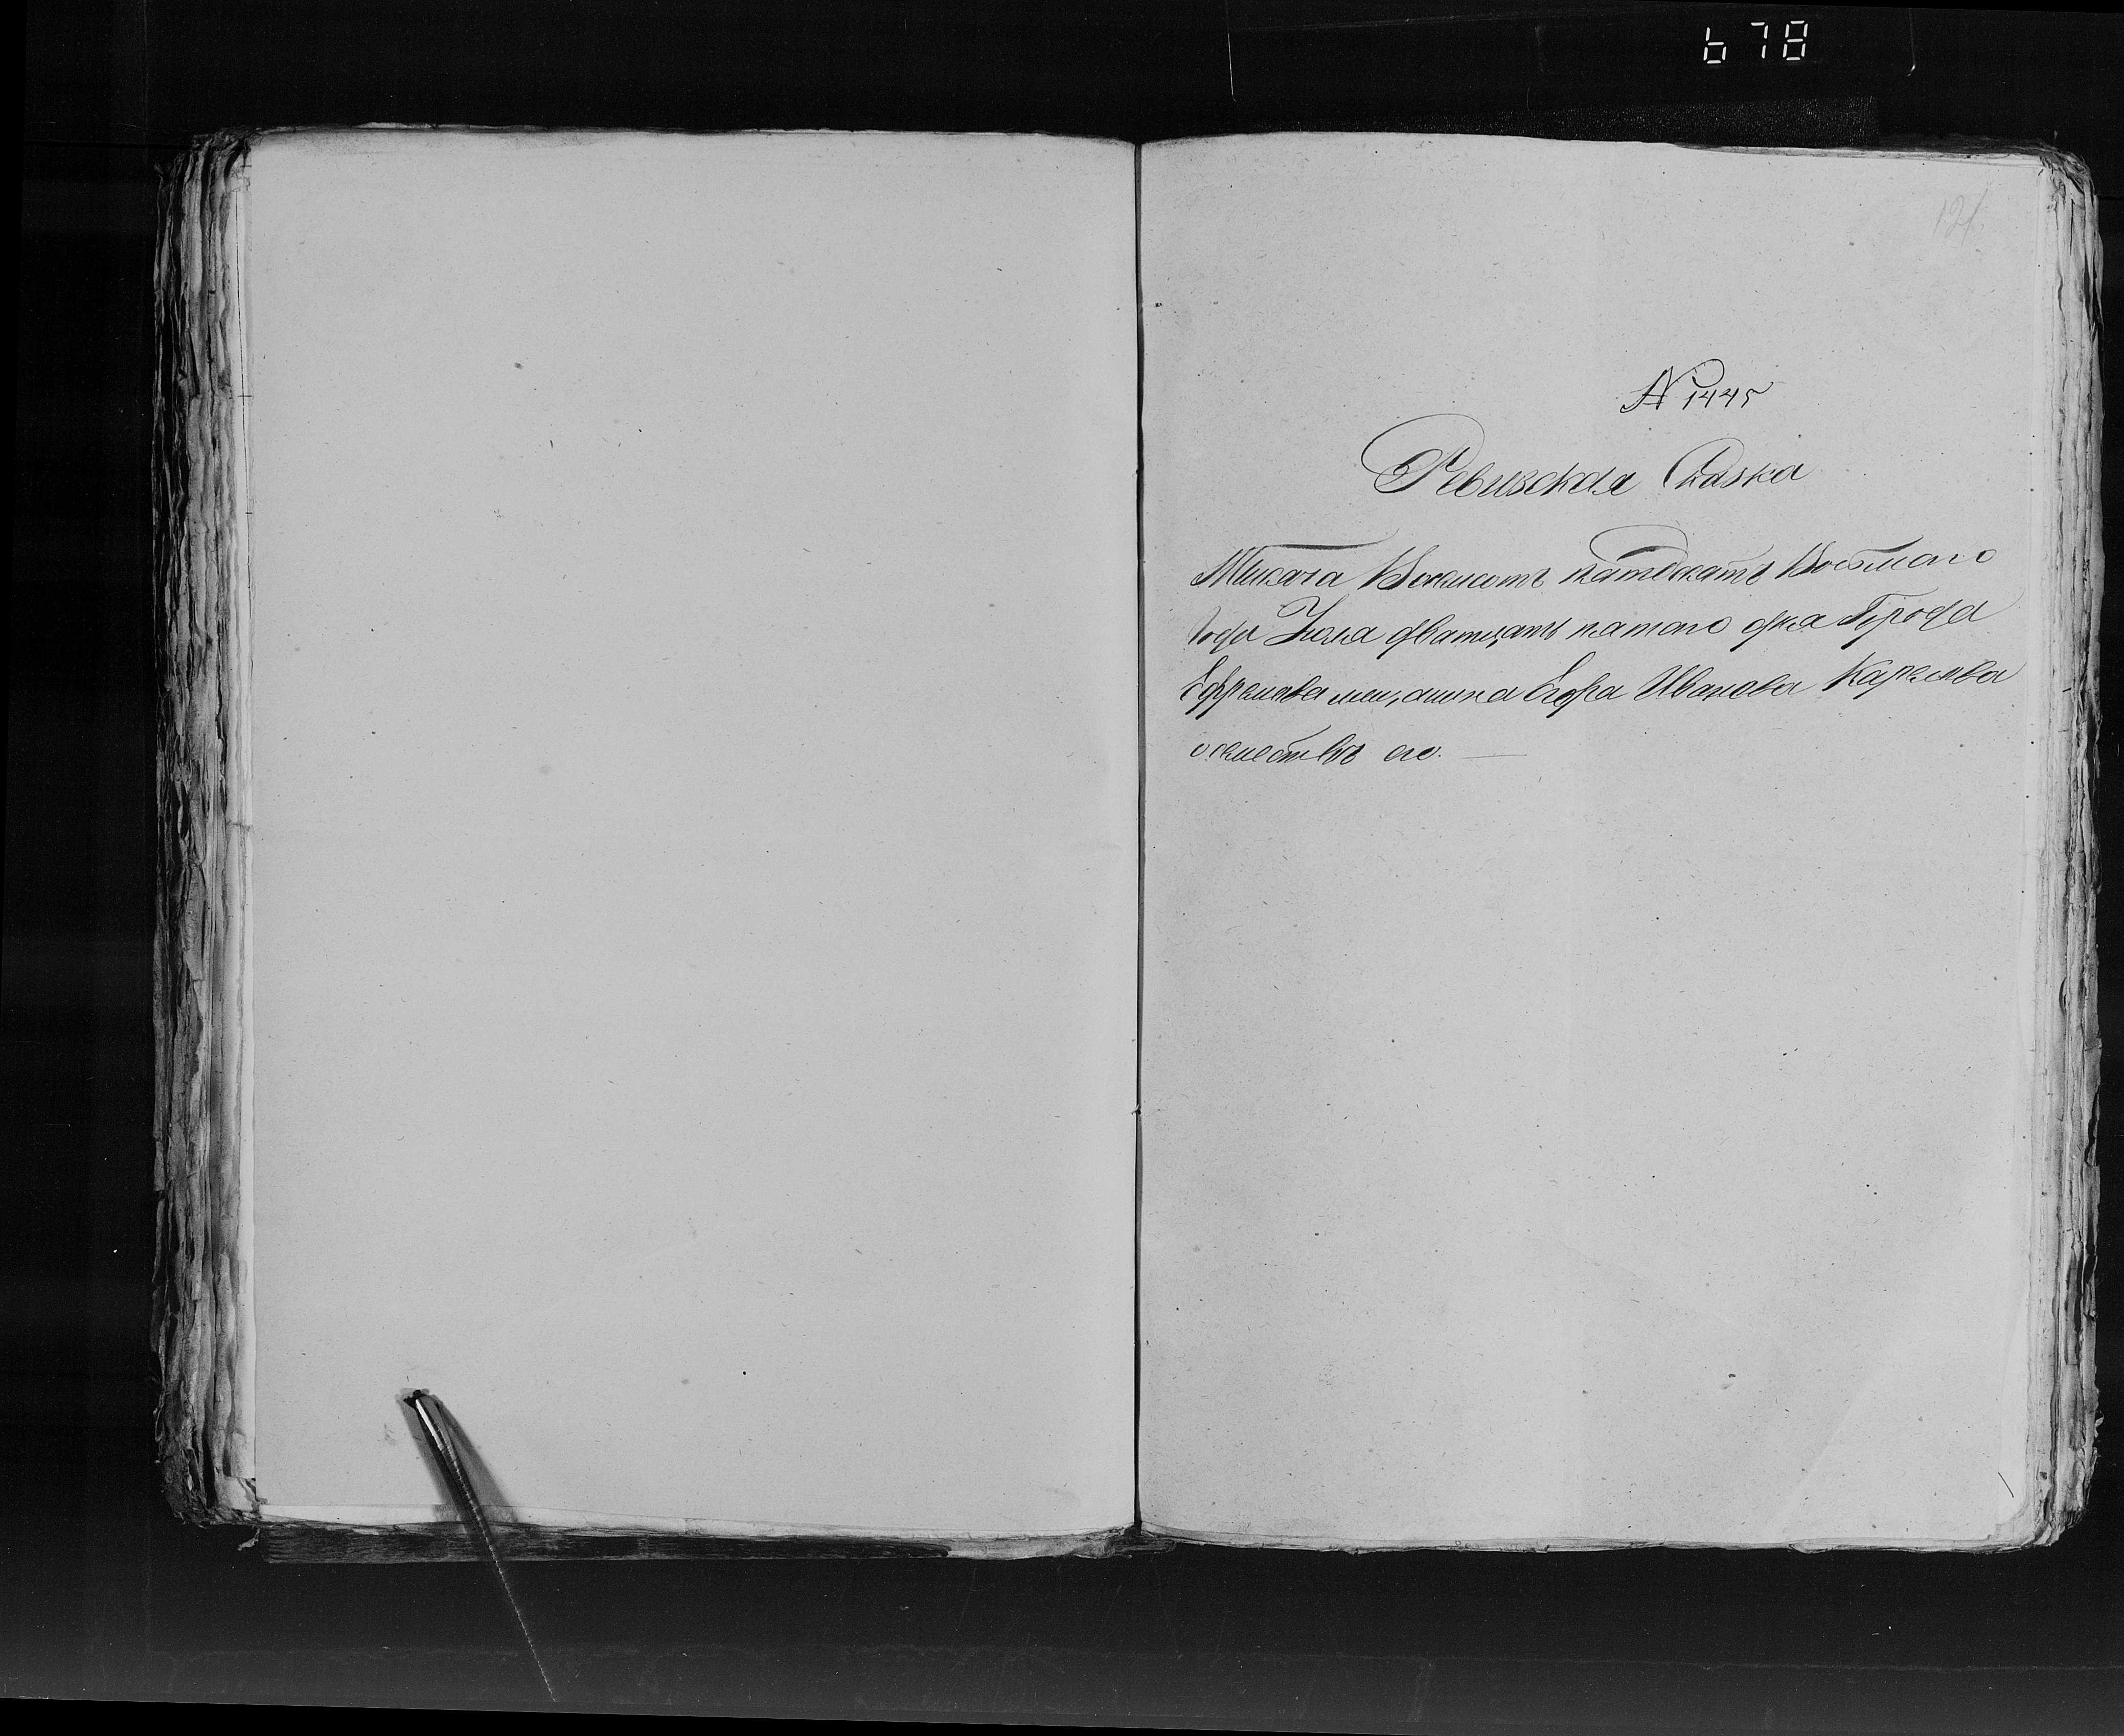 678
121
N 1445
Ревизская Сказка
Тысяча Восемсотъ пятдесятъ Восьмаго
Года Июля дватцать пятаго дня Города
Ефремова мещанина Егора Иванова Карпова
о семействъ его. —